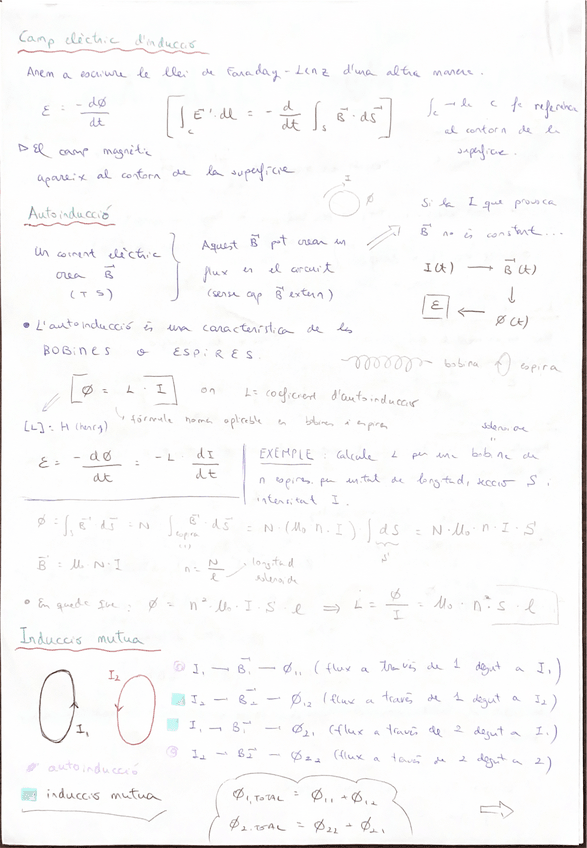 Camp elèctric d'inducció
Anem a escriure la llei de Faraday-Lenz d'una altra manera.
ε = -dΦ/dt [∫c E·dl = - d/dt ∫s B·dS] ∫c → la c fa referència
al contorn de la
superfície.
▷ El camp magnètic
apareix al contorn de la superfície
I
Φ
Autoinducció
Si la I que provoca
B no és constant...
Un corrent elèctric
crea B
Aquest B pot crear un
flux en el circuit
(sense cap B extern)
I(t) → B(t)
↓
ε ← Φ(t)
• L'autoinducció és una característica de les
BOBINES o ESPIRES.
bobina espira
[Φ = L · I] on L = coeficient d'autoinducció
[L] = H (henry) fórmula només aplicable en bobines i espires
ε = -dΦ/dt = -L dI/dt
solenoide
EXEMPLE: calcula L per una bobina de
n espires per unitat de longitud, secció S,
intensitat I.
Φ = ∫s B dS = N ∫espira B·dS = N·(μ₀ n·I) ∫ dS = N·μ₀·n·I·S
S
B = μ₀·N·I n = N/l longitud
solenoide
• En queda que: Φ = n²·μ₀·I·S·l ⇒ L = Φ/I = μ₀·n²·S·l
Inducció mutua
I₁ I₂
I₁ → B₁ → Φ₁₁ (flux a través de 1 degut a I₁)
I₂ → B₂ → Φ₁₂ (flux a través de 1 degut a I₂)
I₁ → B₁ → Φ₂₁ (flux a través de 2 degut a I₁)
I₂ → B₂ → Φ₂₂ (flux a través de 2 degut a 2)
autoinducció
inducció mutua
Φ₁,TOTAL = Φ₁₁ + Φ₁₂
Φ₂,TOTAL = Φ₂₂ + Φ₂₁